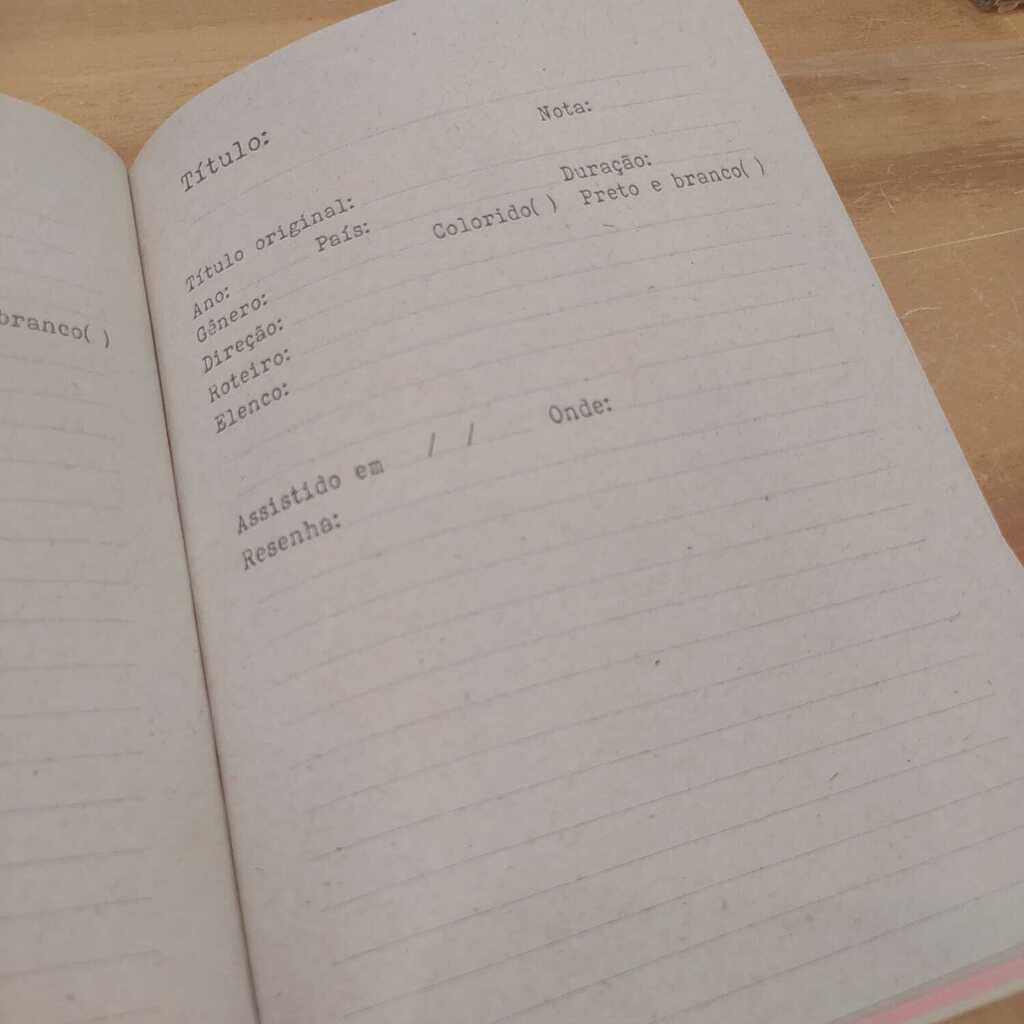 branco( )
Título:
Nota:
Título original:
Duração:
Ano: País: Colorido( ) Preto e branco( )
Gênero:
Direção:
Roteiro:
Elenco:
Assistido em / / Onde:
Resenha: